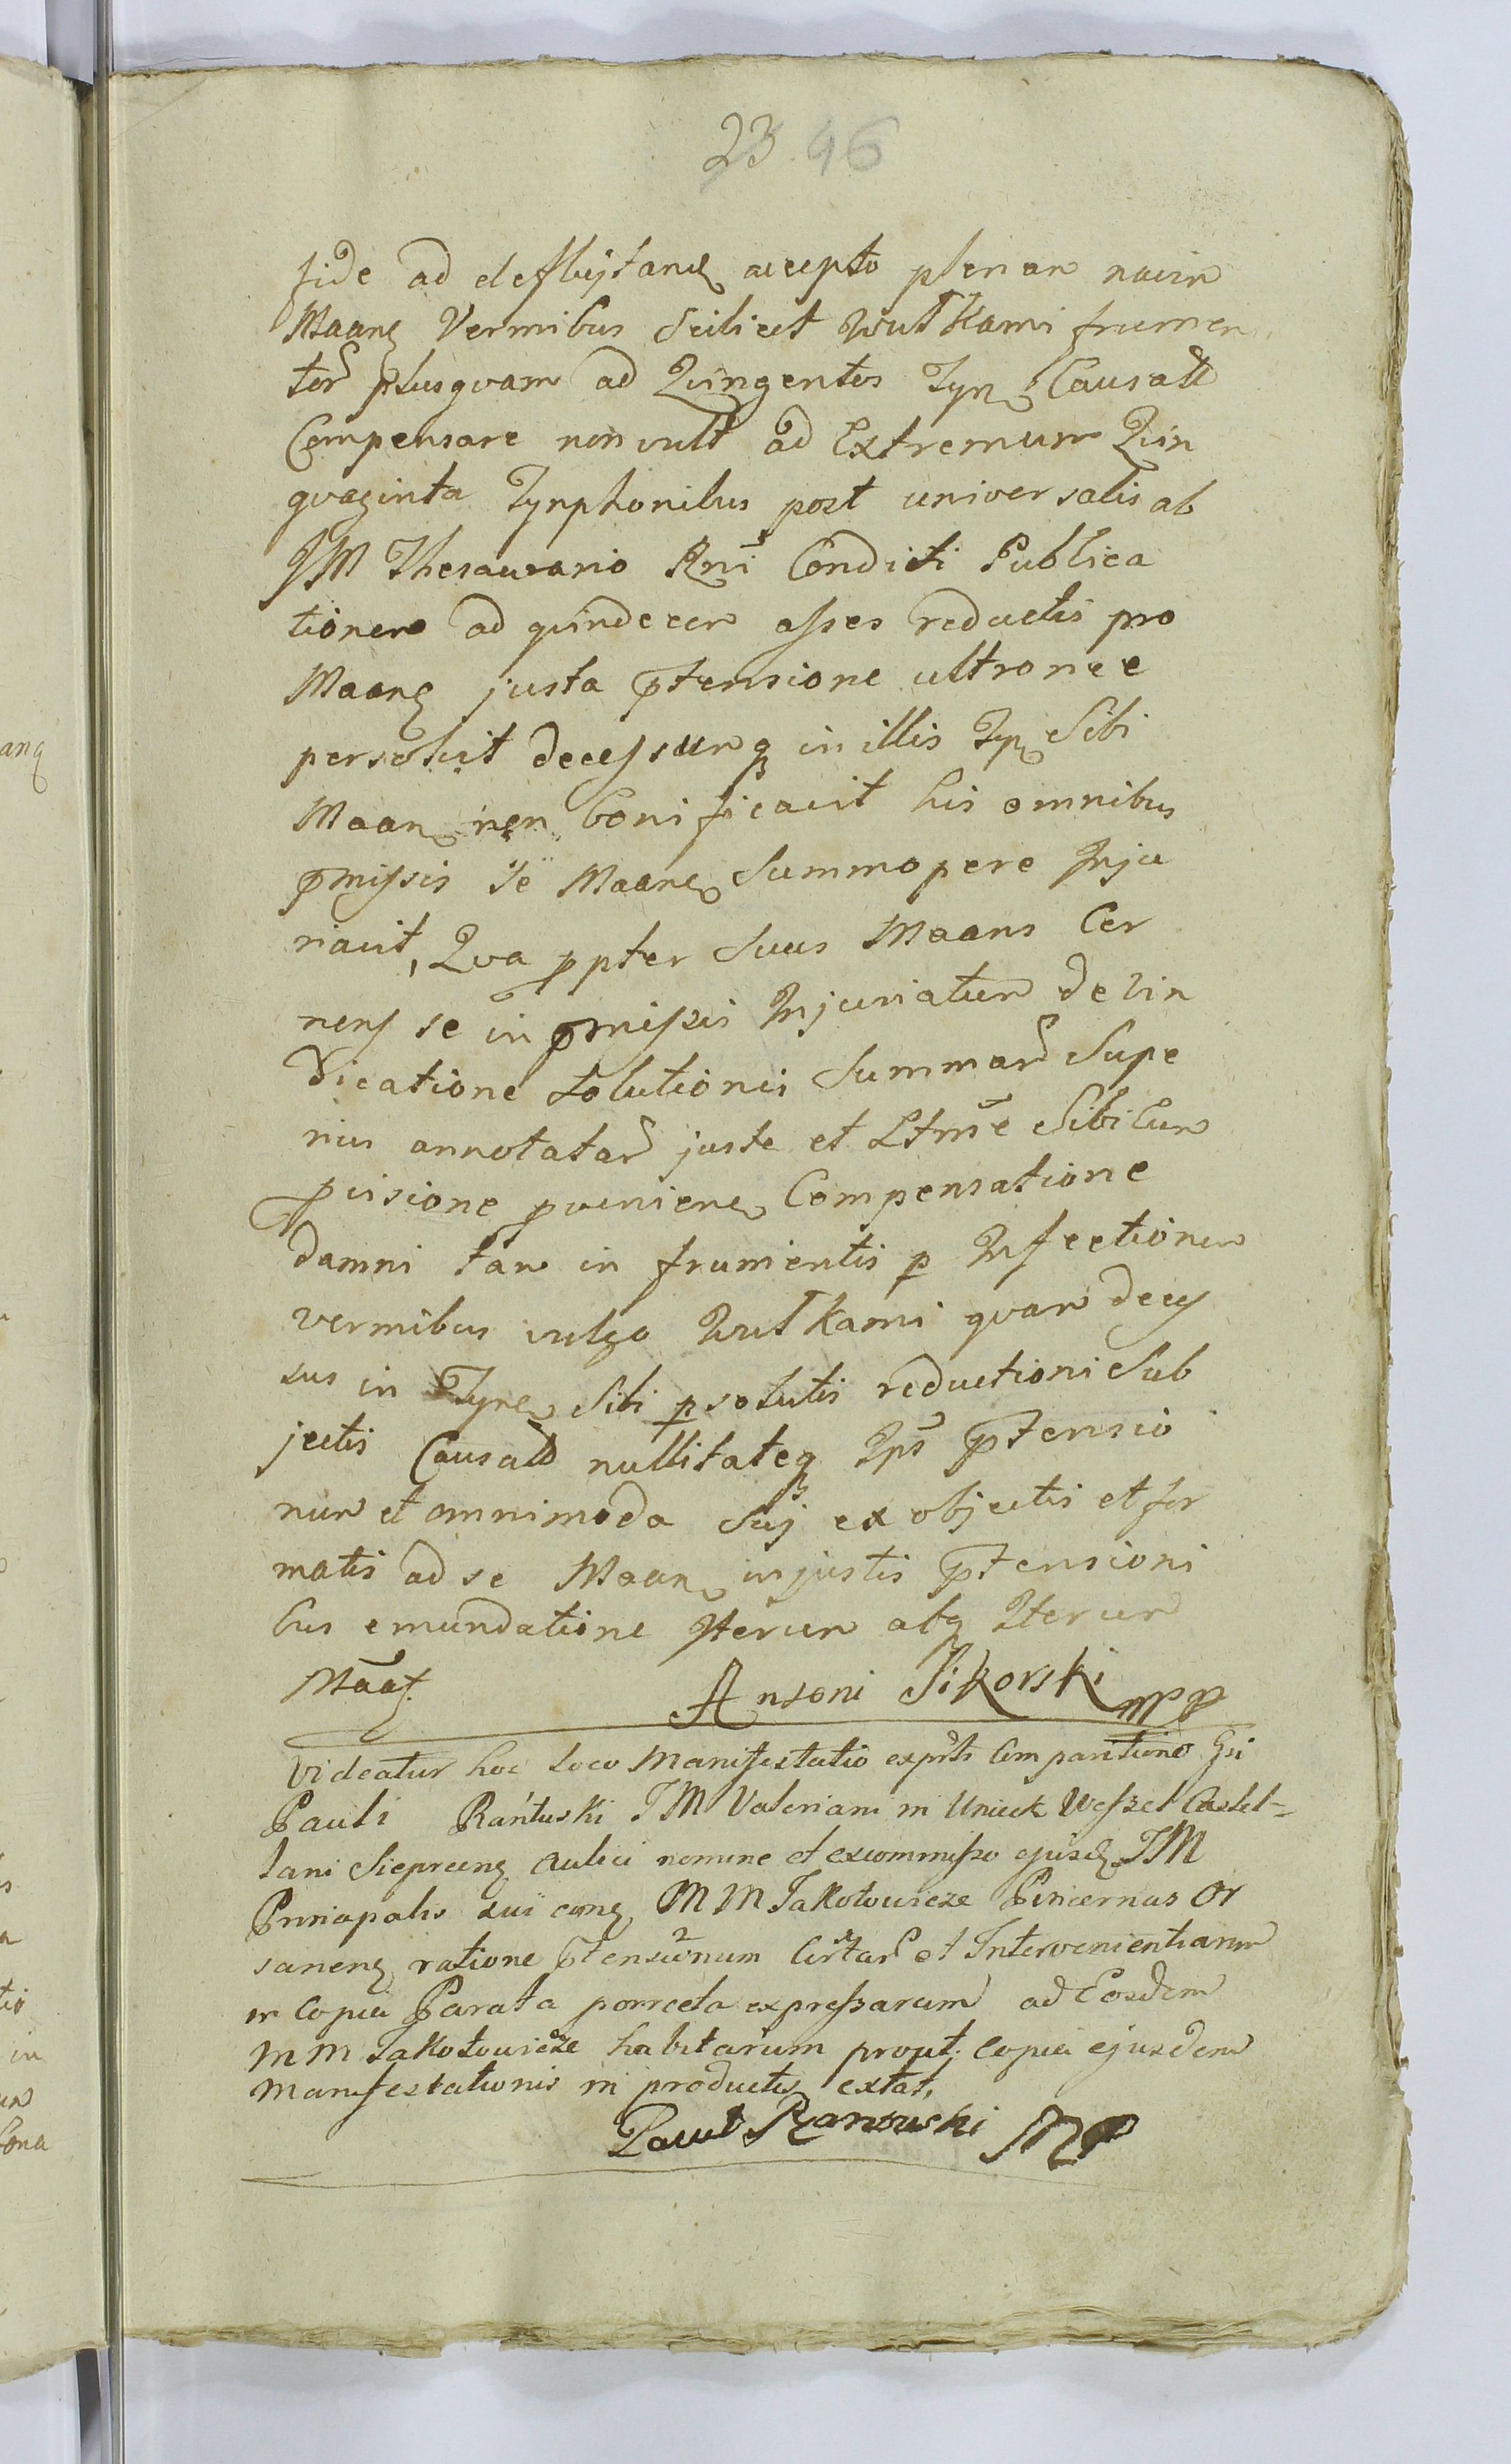 23 96
fide ad defluitanđ accepto plenan navin
Maanę Vermibus Scilicet Wułkami frumen
tor̃ plusqvam ad Qvingentos Tynę Causatt
Compensare non vult ad Extremum Qvin
qvaginta Tynphonibus post universalis ab
JM Thesaurario Rni Conditi Publica
tionem ad qvindecem asses reductis pro
Maanę justa ptensione ultronee
persolvit decessumq in illis Tyn Sibi
Maan non bonificavit his omnibus
pmissis se Maanę Summopere Inju
riavit, Qva ppter Suus Maans Cer
nens se in pmissis Injuriatum de vin
dicatione Solutionis Summar̃ Supe
rius annotatar̃ juste et Ltme Sibi Cum
pvisione pvenienę Compensatione
damni tam in frumentis p Infectionem
vermibus vulgo Wułkami qvam deces
sus in Tynę Sibi psolutis reductioni Sub
jectis Causatt nullitateq Ips ptensio
num et omnimoda Suj ex objectis et for
matis ad se Maanę injustis ptensioni
bus emundatione Iterum atq Iterum
Maat.
Antoni Sikorski mpp
Videatur hoc loco Manifestatio exprts Comparitione Gsi
Pauli Rańtuski JM Valeriani in Unieck Wessel Castel=
lani Siepreenę Aulici nomine et excommisso ejusd JM
Principalis sui conę MM Jakołowicze Pincernas Or
sanenę ratione ptensionum Certar̃ et Intervenientiarum
in Copia Parata porrecta expressarum ad Eosdem
MM Jakołowicze habitarum prout Copia ejusdem
Manifestationis in productis extat,
Paweł Rantuski MP